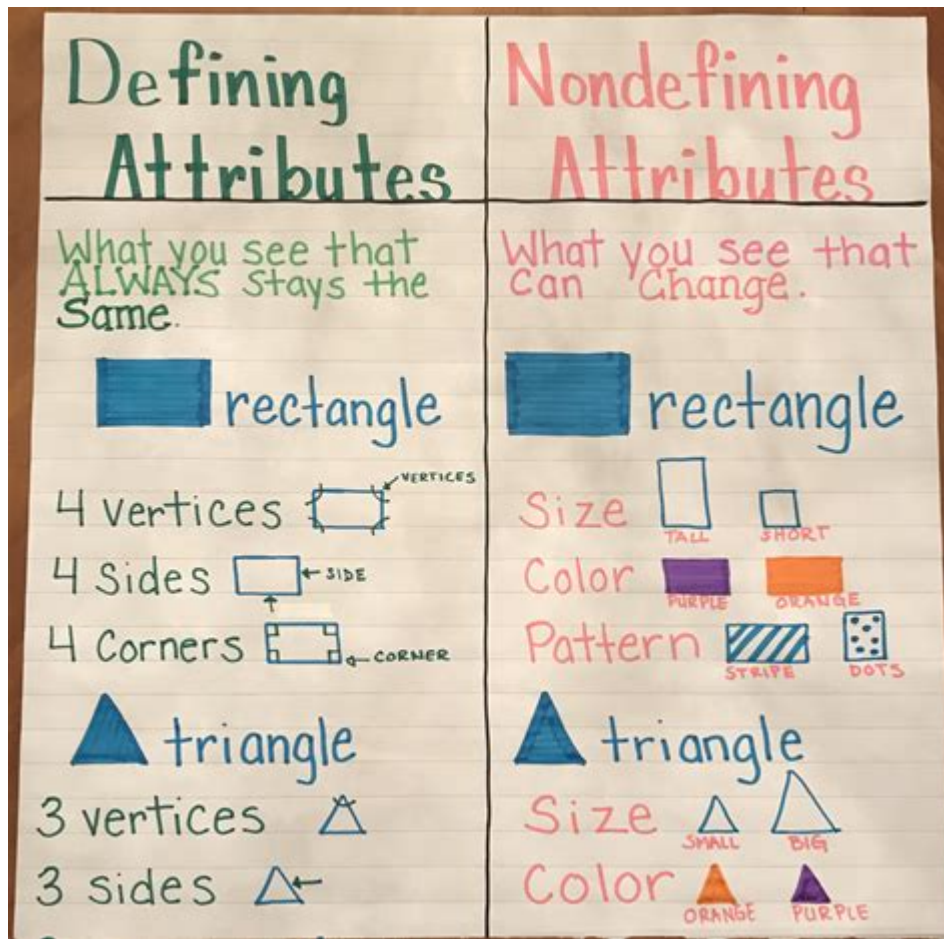 Defining
Attributes
What you see that
ALWAYS stays the
Same.
rectangle
4 vertices VERTICES
4 Sides SIDE
4 Corners CORNER
triangle
3 vertices
3 sides
Nondefining
Attributes
What you see that
can Change.
rectangle
Size
TALL SHORT
Color
PURPLE ORANGE
Pattern
STRIPE DOTS
triangle
Size
SMALL BIG
Color
ORANGE PURPLE